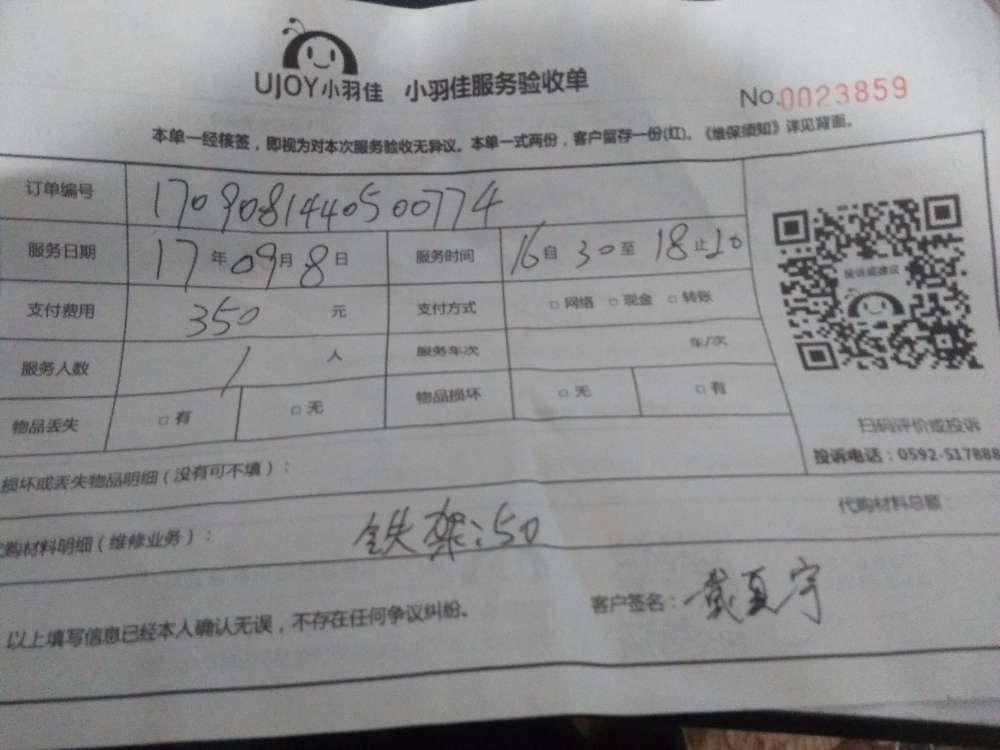 UJOY小羽佳 小羽佳服务验收单
No.0023859
本单一经接签，即视为对本次服务验收无异议。本单一式两份，客户留存一份(红)。《维保须知》详见背面。
订单编号 1709081440500774
服务日期 17年09月8日 服务时间 16自30至18止20
支付费用 350 元 支付方式 □网络 □现金 □转账
服务人数 1 人 服务车次 车/次
物品丢失 □有 □无 物品损坏 □无 □有
投诉或建议
扫码评价或投诉
投诉电话：0592-517888
损坏或丢失物品明细（没有可不填）：
代购材料明细（维修业务）： 铁架：50 代购材料总额：
以上填写信息已经本人确认无误，不存在任何争议纠纷。 客户签名：戴夏宇